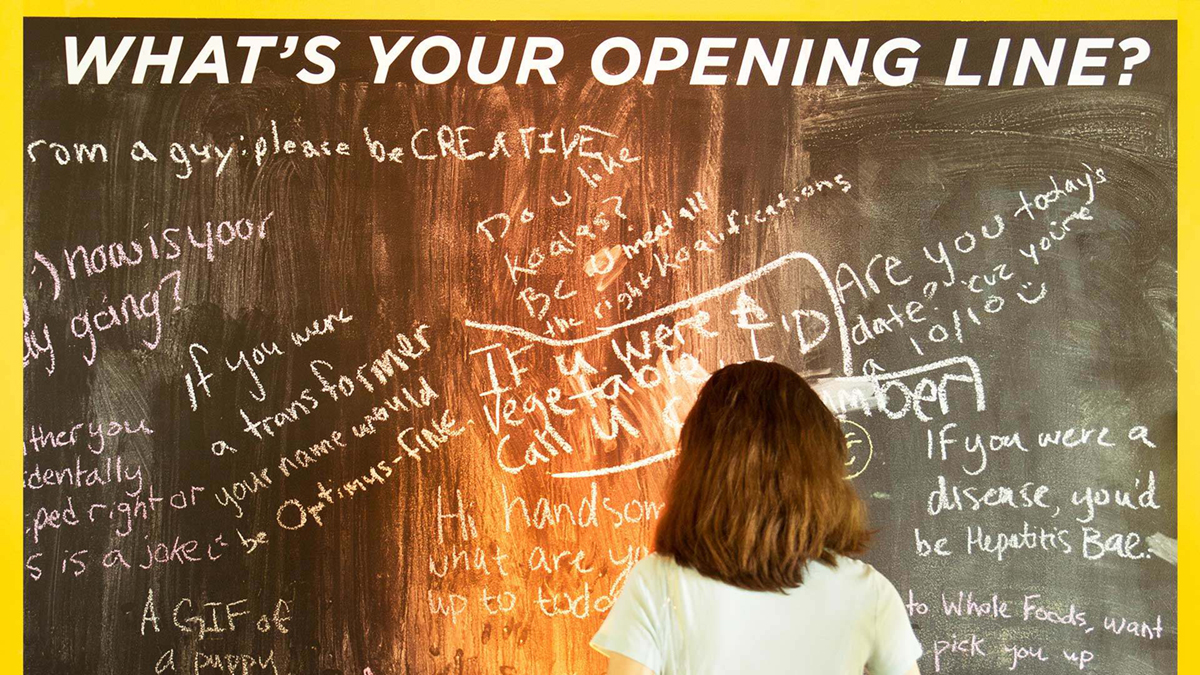 WHAT'S YOUR OPENING LINE?
rom a guy: please be CREATIVE
:) how is your
ay going?
If you were
a transformer
your name would
be Optimus-fine.
ther you
identally
ped right or
s is a joke
A GIF of
a puppy
Do u like
Koalas?
BC U meet all
the right Koalifications
IF u were A
Vegetable, I'D
Call u
mber
Hi handsom
what are yo
up to toda
Are you todays
date? 'cuz you're
a 10/10 :)
If you were a
disease, you'd
be Hepatitis Bae.
to Whole Foods, want
pick you up